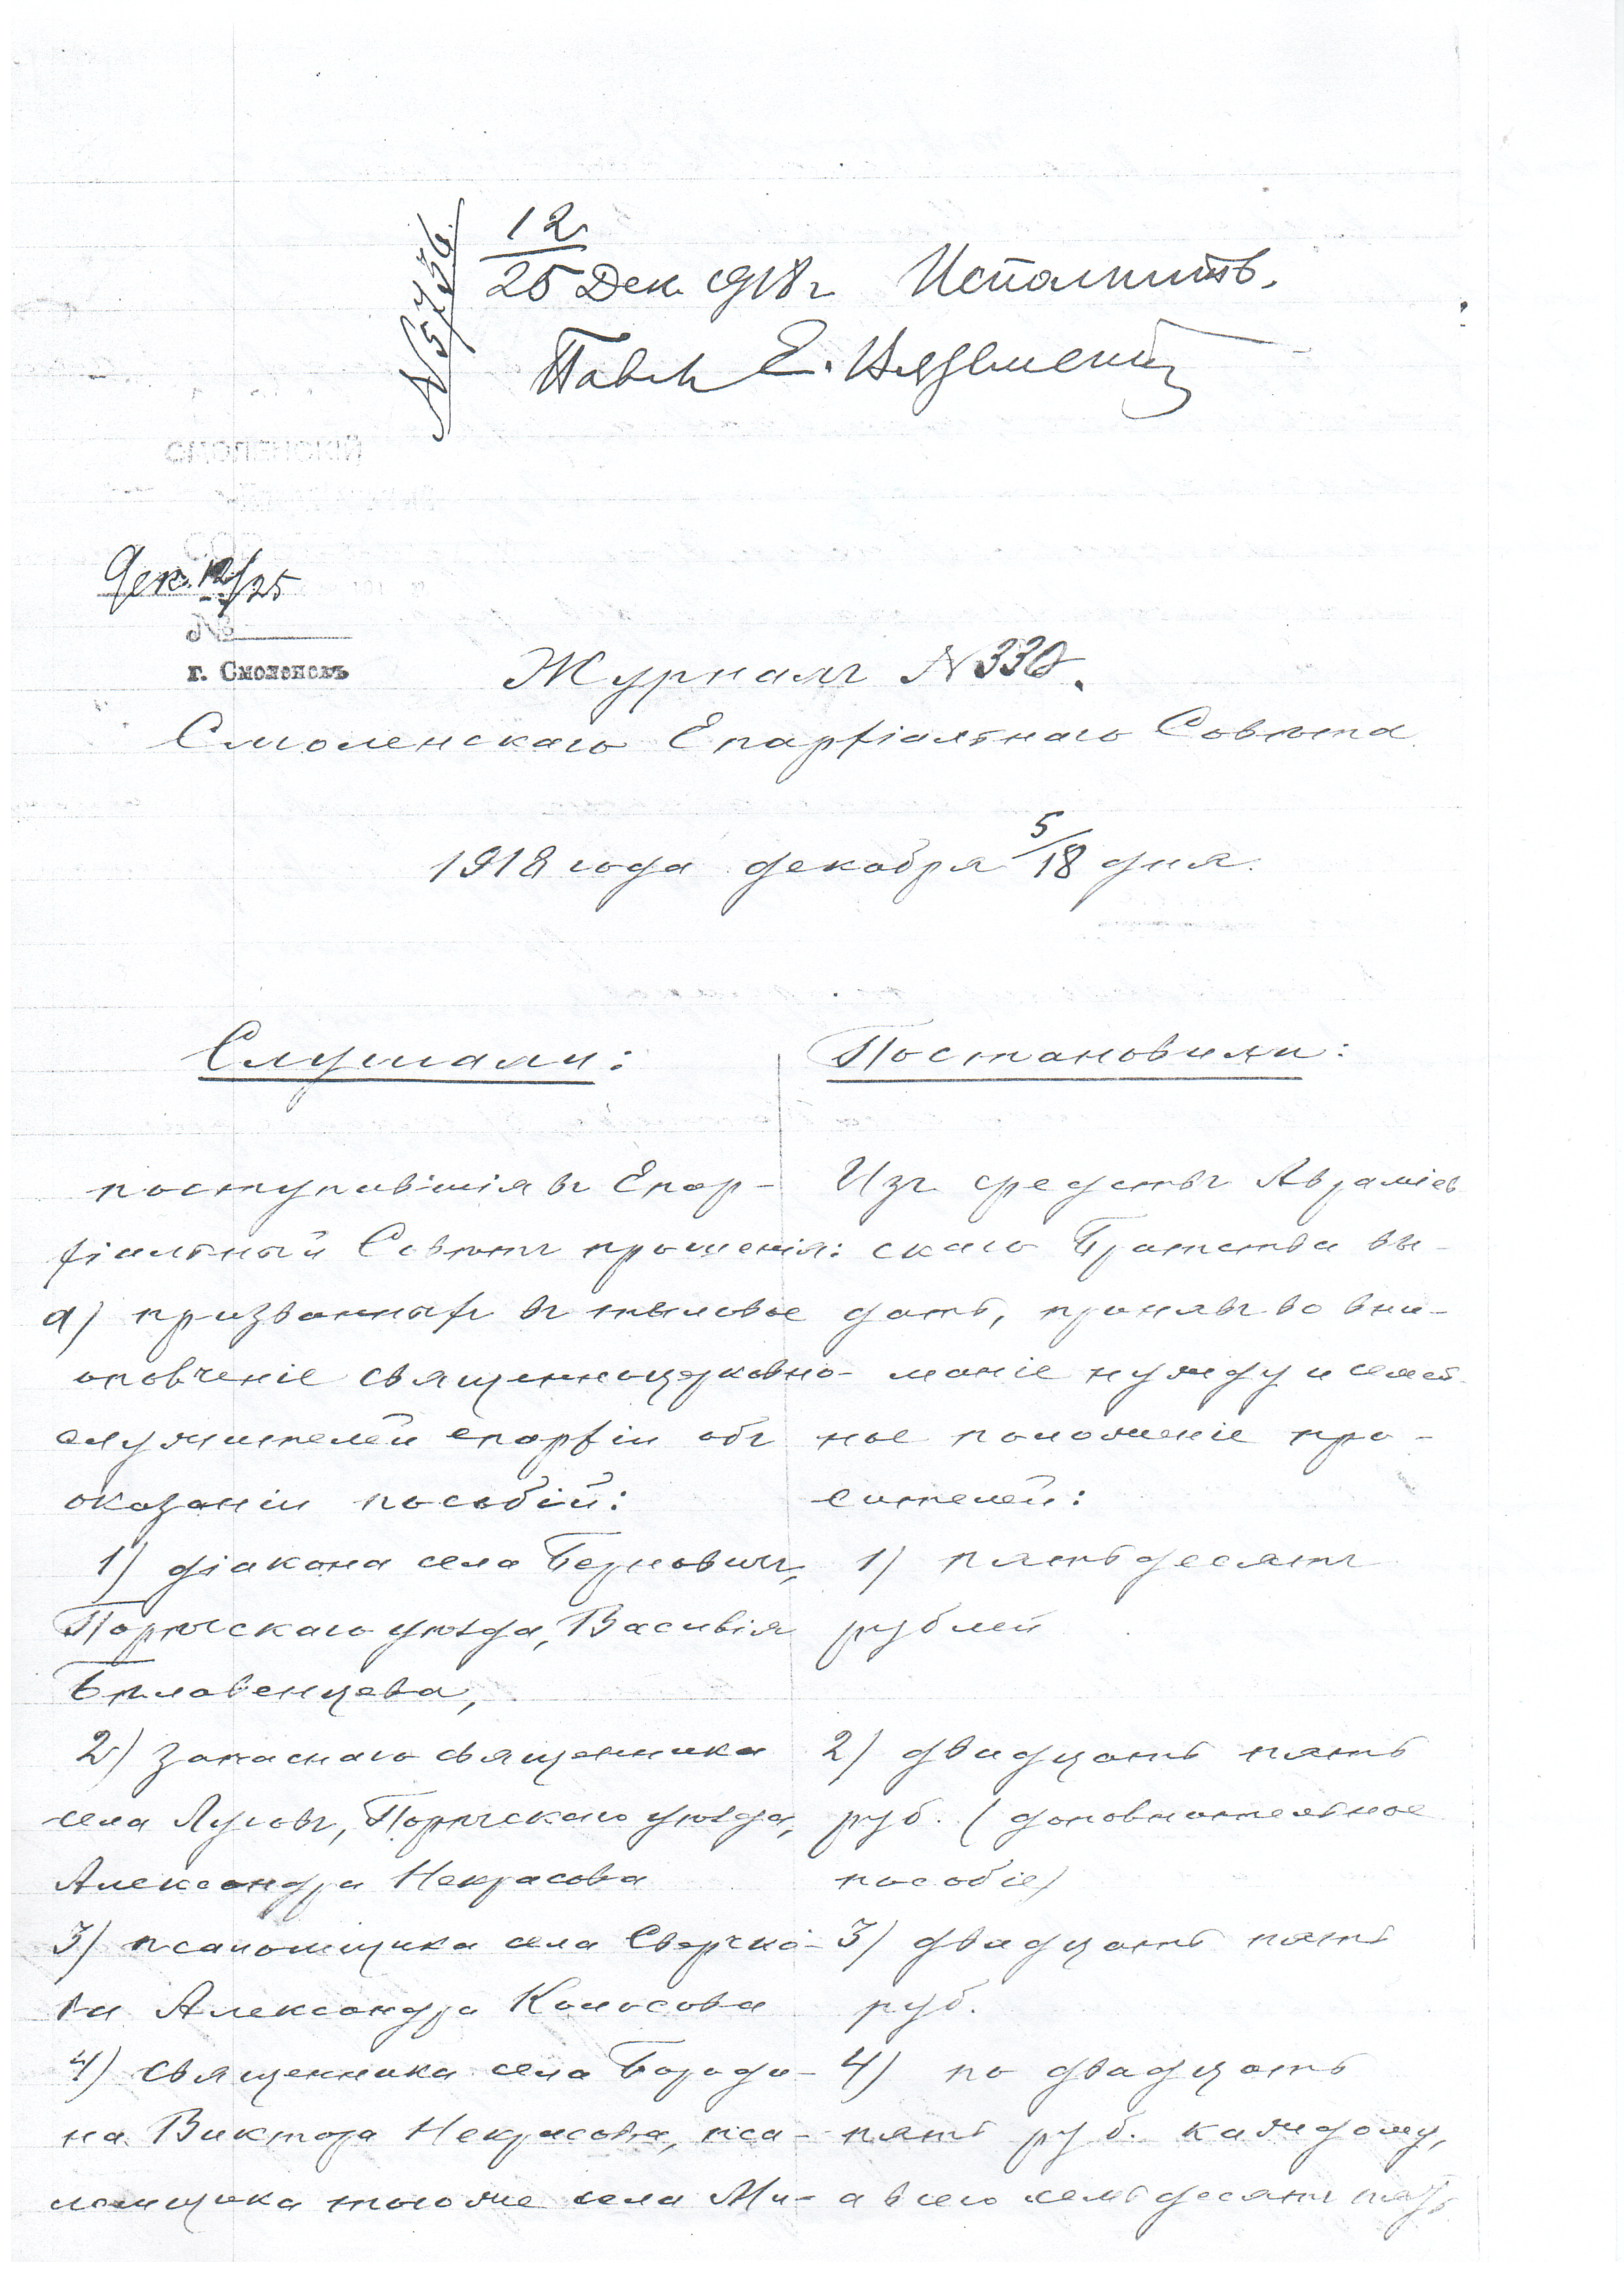 12
25 Дек. 1918 г. Исполнить.
Павелъ Е. Вяземскій
N 5756
СМОЛЕНСКІЙ
Дек. 12/25
№
г. Смоленскъ
Журналъ N 330.
Смоленскаго Епархіальнаго Совѣта
1918 года декабря 5/18 дня.
Слушали:
Постановили:
поступившія въ Епар-
хіальный Совѣтъ прошенія:
а) призванныхъ въ тыловое
ополченіе священноцерковно-
служителей епархіи объ
оказаніи пособій:
1) діакона села
Порѣчскаго уѣзда, Василія
Бѣлавенцева,
2) запаснаго священника
села Луговъ, Порѣчскаго уѣзда,
Александра Некрасова
3) псаломщика села Сверчко-
ва Александра Колосова
4) священника села Бороди-
на Виктора Некрасова, пса-
ломщика того же села Ми-
Изъ средствъ Авраміев
скаго Братства вы-
дать, принявъ во вни-
маніе нужду и семей-
ное положеніе про-
сителей:
1) пятьдесятъ
рублей
2) двадцать пять
руб. (дополнительное
пособіе)
3) двадцать пять
руб.
4) по двадцать
пять руб. каждому,
а всего семьдесятъ пять